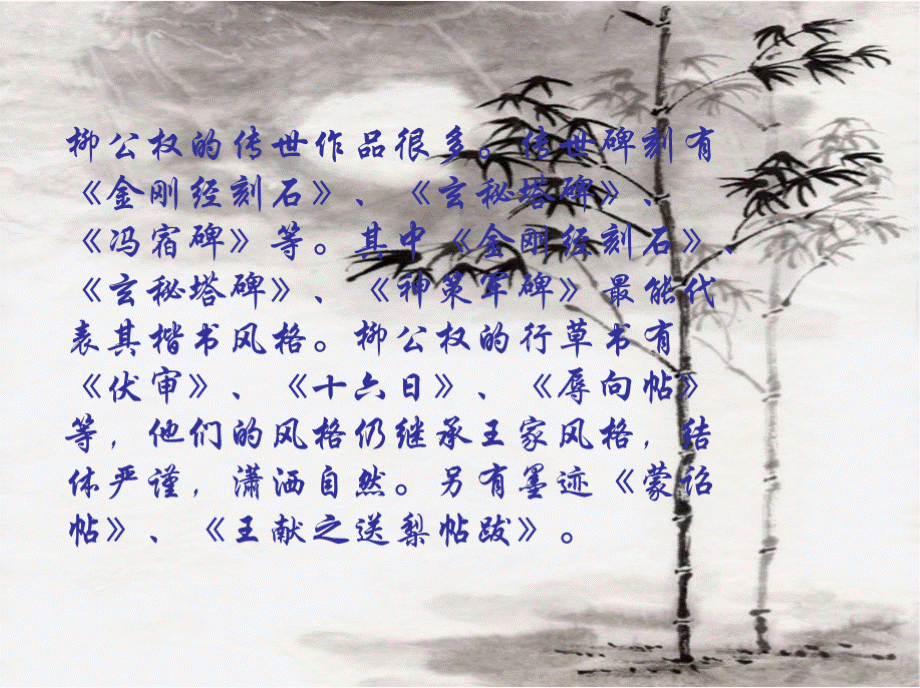 柳公权的传世作品很多。传世碑刻有
《金刚经刻石》、《玄秘塔碑》、
《冯宿碑》等。其中《金刚经刻石》、
《玄秘塔碑》、《神策军碑》最能代
表其楷书风格。柳公权的行草书有
《伏审》、《十六日》、《辱向帖》
等，他们的风格仍继承王家风格，结
体严谨，潇洒自然。另有墨迹《蒙诏
帖》、《王献之送梨帖跋》。